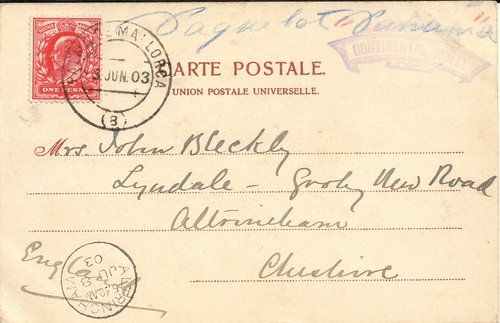 Paquebot Panama
CONTINENTAL
ONE PENNY
MALLORCA
JUN. 03
(3)
CARTE POSTALE.
UNION POSTALE UNIVERSELLE.
Mrs. John Bleckly
Lyndale - Groby New Road
Altrincham
Cheshire
England
ALTRINCHAM
JU 8
03